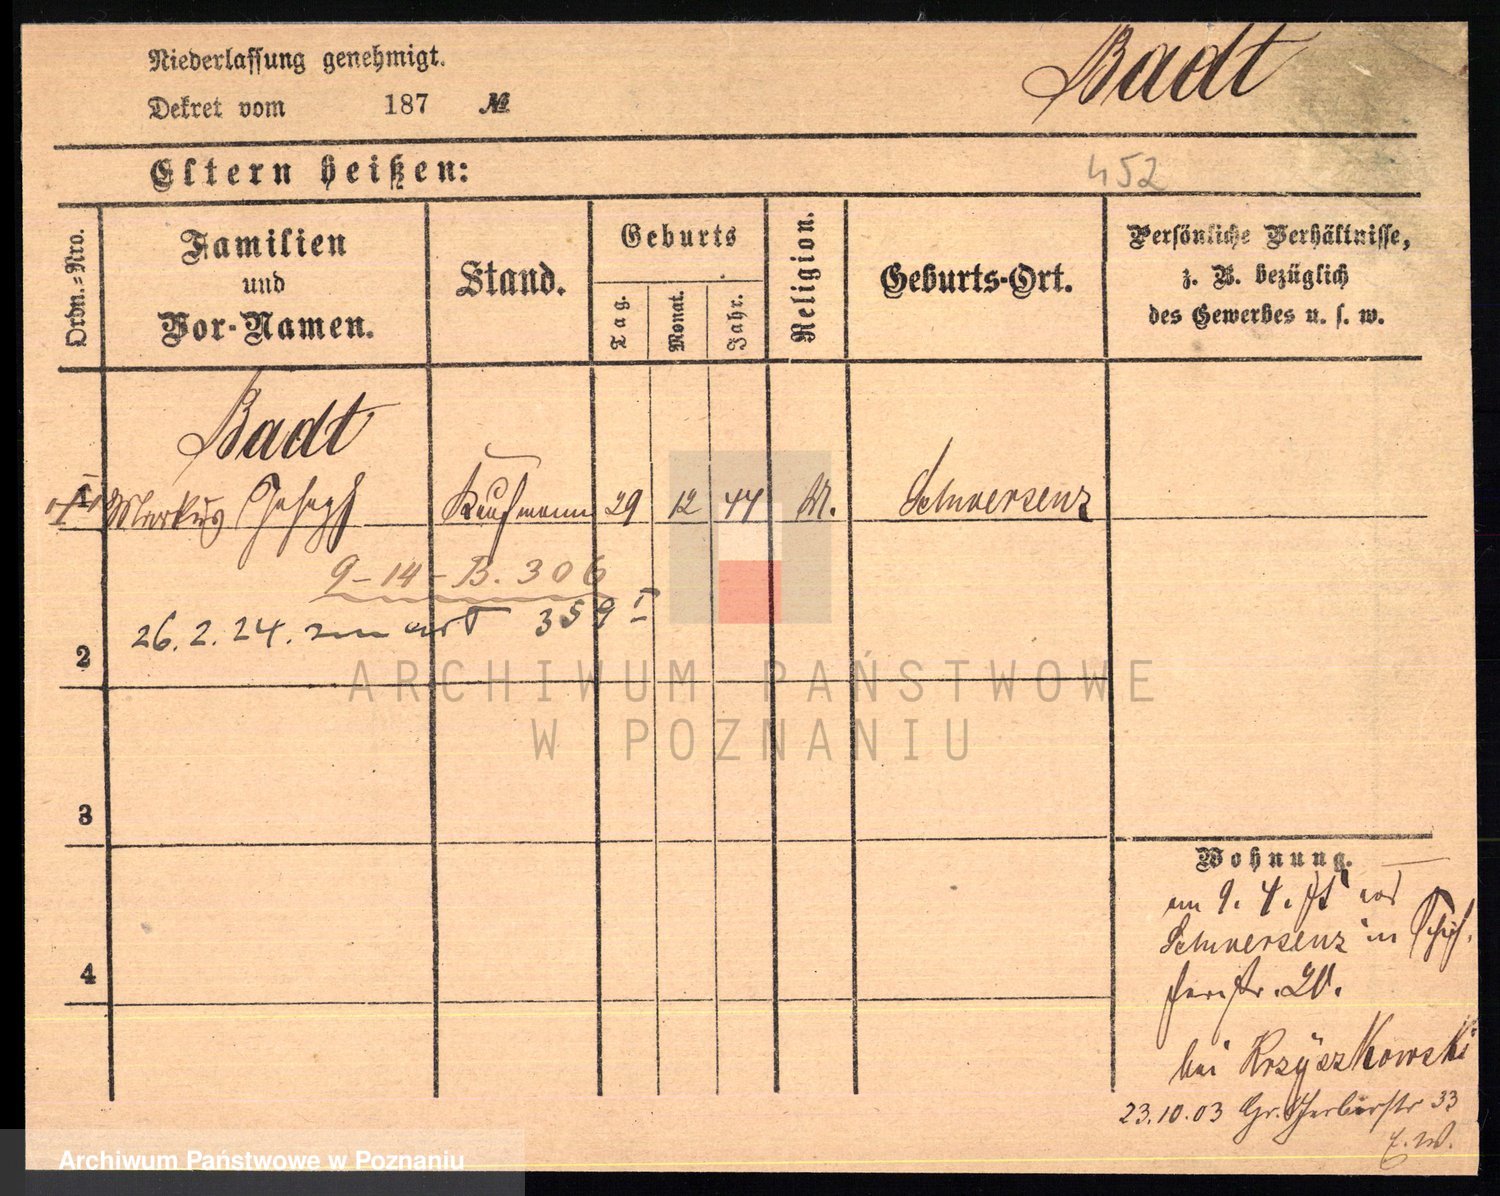 Niederlassung genehmigt.
Dekret vom 187 №
Badt
Eltern heißen:
452
Ordn.-Nro.
Familien
und
Vor-Namen.
Stand.
Geburts
Tag.
Monat.
Jahr.
Religion.
Geburts-Ort.
Persönliche Verhältnisse,
z. B. bezüglich
des Gewerbes u. s. w.
Badt
1 Markus Joseph Kaufmann 29 12 44 M. Schwersenz
9-14-B. 306
26.2.24. 359 I
2
3
4
Wohnung.
am 9. 4.
Schwersenz in
20.
bei Krzyszkowski
23.10.03 Gr. Gerberstr 33
ARCHIWUM PAŃSTWOWE
W POZNANIU
Archiwum Państwowe w Poznaniu